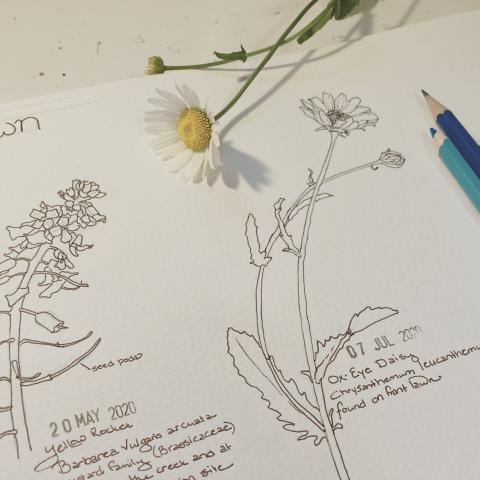 wn
seed pods
20 MAY 2020
Yellow Rocket
Barbarea Vulgaris arcuata
mustard family (Brassicaceae)
the creek and at
site
07 JUL 2020
Ox-Eye Daisy
Chrysanthemum leucanthemu
found on front lawn